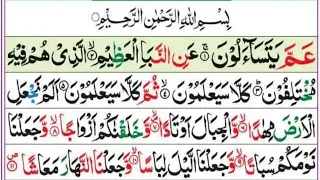 بِسْمِ اللّٰهِ الرَّحْمٰنِ الرَّحِيْمِ
عَمَّ يَتَسَآءَلُوْنَ ۚ ١ عَنِ النَّبَاِ الْعَظِيْمِ ۙ ٢ الَّذِيْ هُمْ فِيْهِ
مُخْتَلِفُوْنَ ؕ ٣ كَلَّا سَيَعْلَمُوْنَ ۙ ٤ ثُمَّ كَلَّا سَيَعْلَمُوْنَ ٥ اَلَمْ نَجْعَلِ
الْاَرْضَ مِهٰدًا ۙ ٦ وَّالْجِبَالَ اَوْتَادًا ۪ۙ ٧ وَّخَلَقْنٰكُمْ اَزْوَاجًا ۙ ٨ وَّجَعَلْنَا
نَوْمَكُمْ سُبَاتًا ۙ ٩ وَّجَعَلْنَا الَّيْلَ لِبَاسًا ۙ ١٠ وَّجَعَلْنَا النَّهَارَ مَعَاشًا ۪ ١١